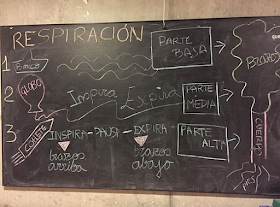 RESPIRACIÓN
1 Barco PARTE BAJA
2 GLOBO Inspira Expira PARTE MEDIA
3 COHETE INSPIRA - PAUSA - EXPIRA PARTE ALTA
brazos arriba brazos abajo
BRAZOS
CUERPO